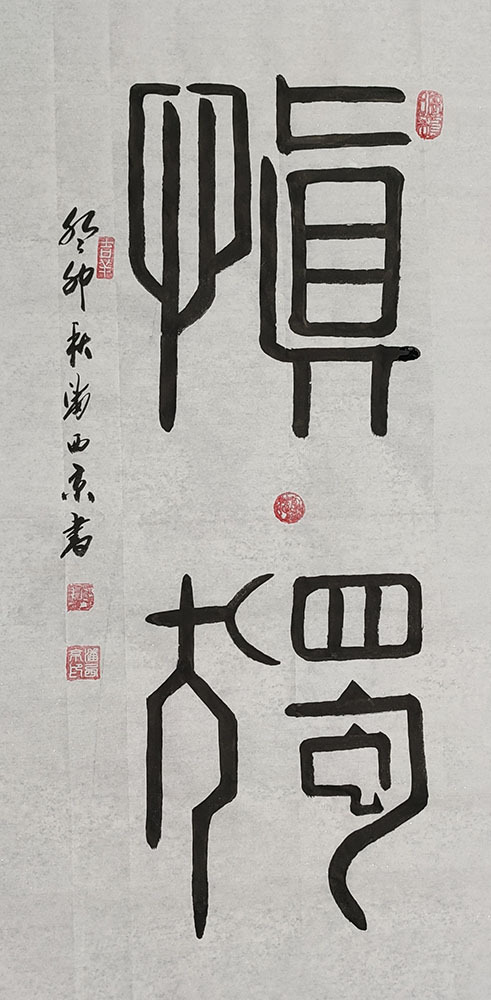 慎獨
癸卯秋潘西京書